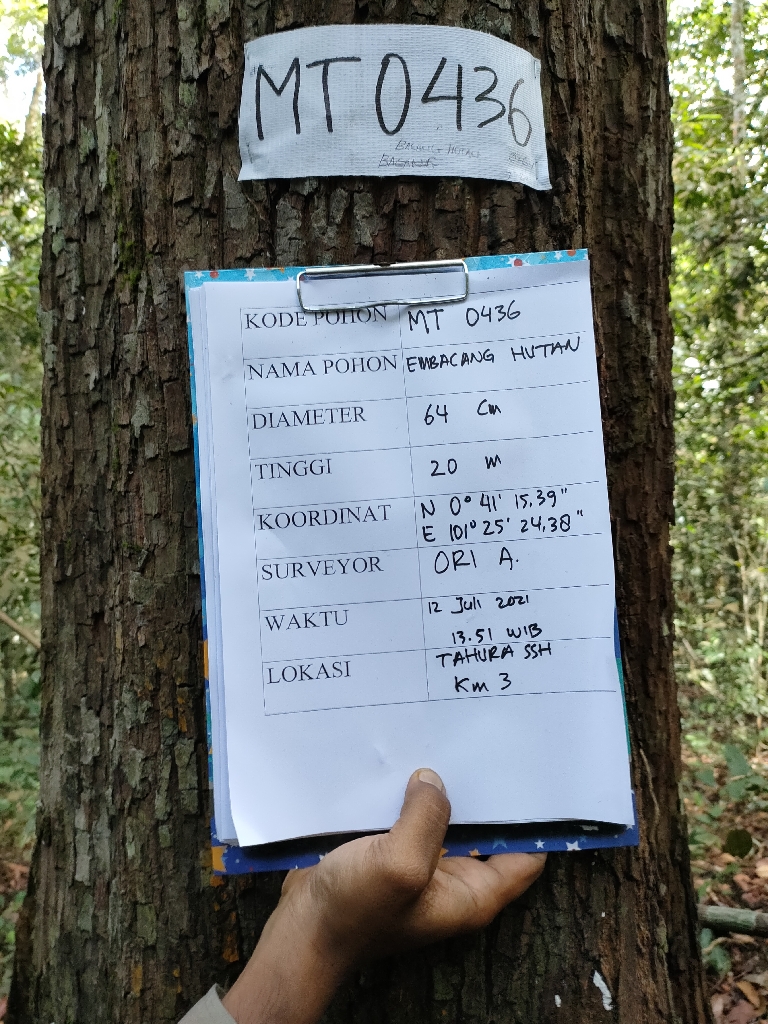 MT 0436
BACANG HUTAN
KODE POHON MT 0436
NAMA POHON EMBACANG HUTAN
DIAMETER 64 Cm
TINGGI 20 m
KOORDINAT N 0° 41' 15,39"
E 101° 25' 24,38"
SURVEYOR ORI A.
WAKTU 12 Juli 2021
13.51 WIB
LOKASI TAHURA SSH
Km 3